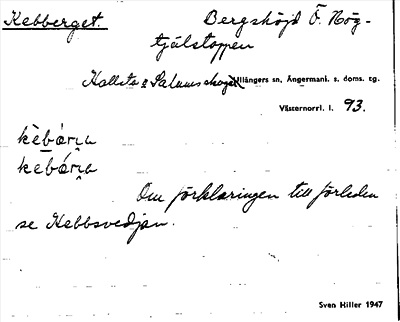 Kebberget. Bergshöjd Ö. Hög-
tjälstoppen
Kallsta & Salumsskogen Hillångers sn, Ångermanl. s. doms. tg.
Västernorrl. l. 93.
Om förklaringen till förleden
se Kebbsvedjan.
Sven Hiller 1947